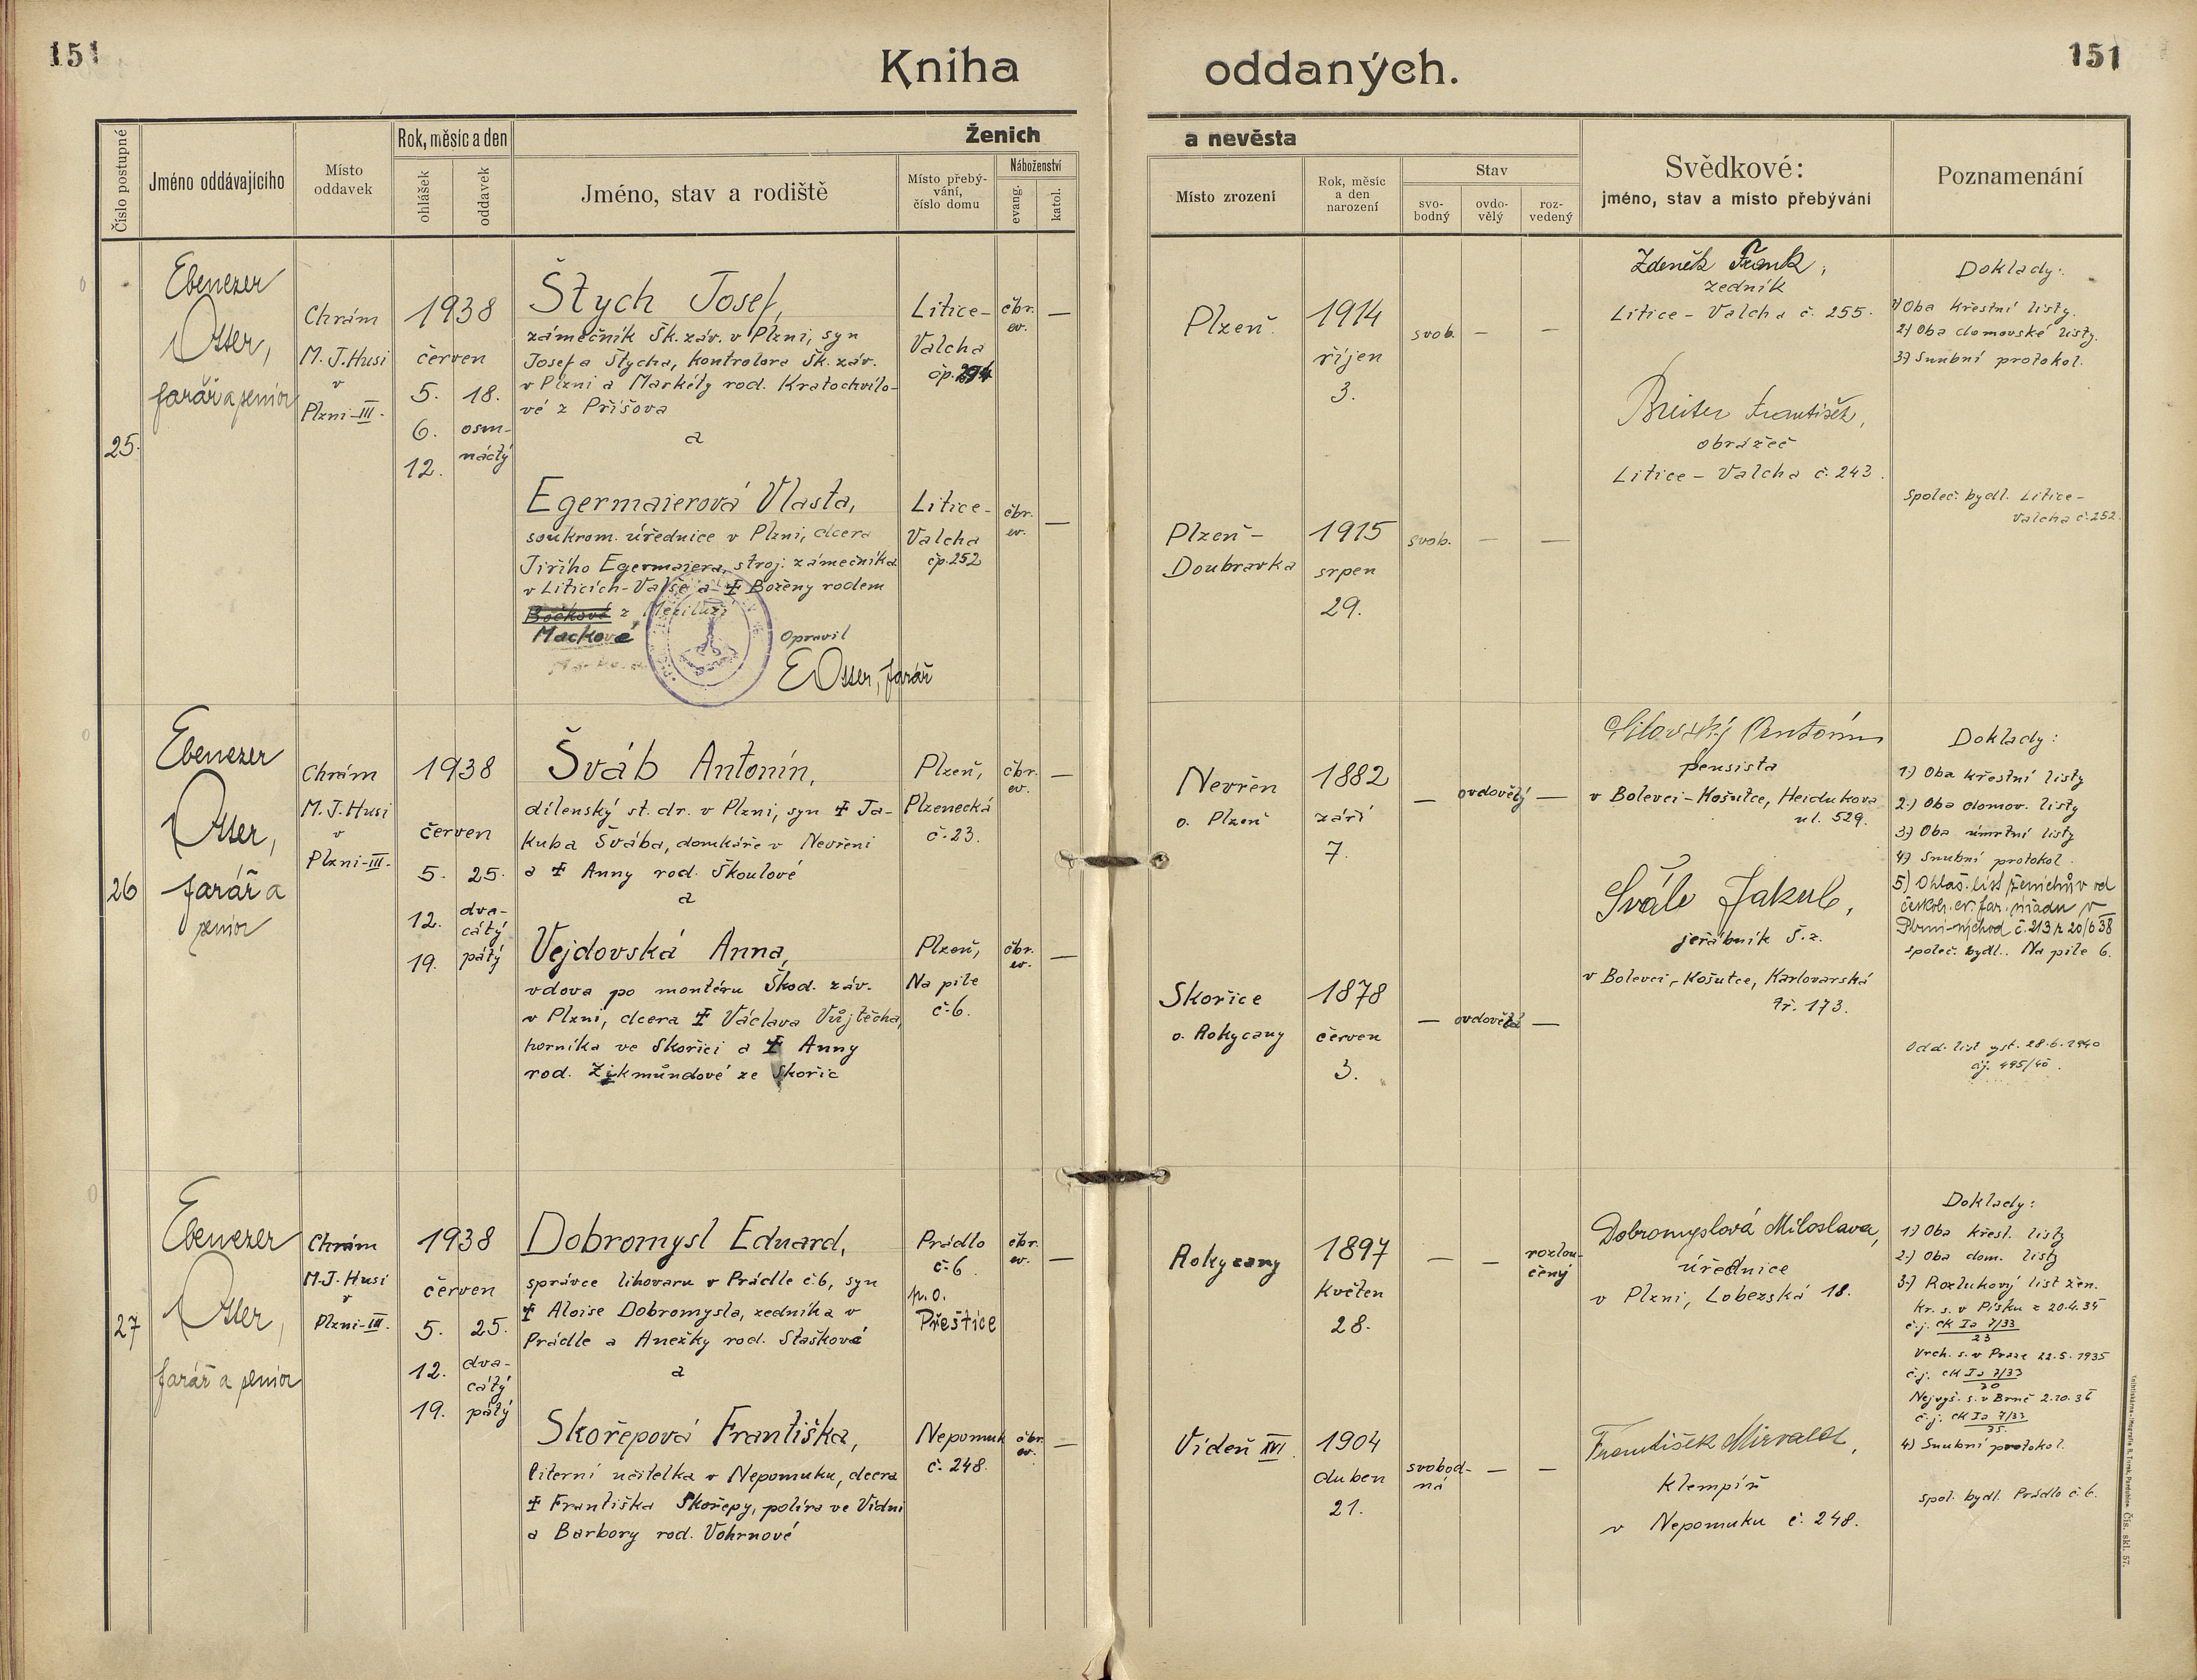 151
Kniha oddaných.
151
Číslo postupné
Jméno oddávajícího
Místo
oddavek
Rok, měsíc a den
ohlášek
oddavek
Ženich
Jméno, stav a rodiště
Místo přebý-
vání,
číslo domu
Náboženství
evang.
katol.
a nevěsta
Místo zrození
Rok, měsíc
a den
narození
Stav
svo-
bodný
ovdo-
vělý
roz-
vedený
Svědkové:
jméno, stav a místo přebývání
Poznamenání
25.
Ebenezer
Otter,
farář a senior
Chrám
M. J. Husi
v
Plzni-III.
1938
červen
5. 18.
6. osm-
náctý
12.
Štych Josef,
zámečník Šk. záv. v Plzni, syn
Josefa Štycha, kontrolora Šk. záv.
v Plzni a Markéty rod. Kratochvílo-
vé z Příšova
a
Litice-
Valcha
čp. 294
čbr.
ev.
—
Egermaierová Vlasta,
soukrom. úřednice v Plzni, dcera
Jiřího Egermaiera, stroj. zámečníka
v Liticích-Valše a ‡ Boženy rodem
Bočkové z Meziluží
Mackové
Opravil
E Otter, farář
Litice-
Valcha
čp. 252
čbr.
ev.
—
Plzeň
1914
říjen
3.
svob. — —
Plzeň-
Doubravka
1915
srpen
29.
svob. — —
Zdeněk Frank,
zedník
Litice - Valcha č. 255.
Breiter František,
obrážeč
Litice - Valcha č. 243.
Doklady:
1) Oba křestní listy.
2) Oba domovské listy.
3) Snubní protokol.
Společ. bydl. Litice-
Valcha č. 252.
26
Ebenezer
Otter,
farář a
senior
Chrám
M. J. Husi
v
Plzni-III.
1938
červen
5. 25.
12. dva-
cátý
19. pátý
Šváb Antonín,
dílenský st. dr. v Plzni, syn ‡ Ja-
kuba Švába, domkáře v Nevřeni
a ‡ Anny rod. Škoulové
a
Plzeň,
Plzenecká
č. 23.
čbr.
ev.
—
Vejdovská Anna,
vdova po montéru Škod. záv.
v Plzni, dcera ‡ Václava Vůjtěcha,
horníka ve Skořici a ‡ Anny
rod. Zikmůndové ze Skořic
Plzeň,
Na pile
č. 6.
čbr.
ev.
—
Nevřeň
o. Plzeň
1882
září
7.
— ovdovělý —
Skořice
o. Rokycany
1878
červen
3.
— ovdovělá —
Antonín
pensista
v Bolevci-Košutce, Heidukova
ul. 529.
Jakub,
jeřábník Š. z.
v Bolevci-Košutce, Karlovarská
tř. 173.
Doklady:
1.) Oba křestní listy
2.) Oba domov. listy
3.) Oba úmrtní listy
4) Snubní protokol.
5) Ohláš. list ženichův od
českobr. ev. far. úřadu v
Plzni-východ č. 213 z 20/6 38
společ. bydl. Na pile 6.
Odd. list vyst. 28.6.1940
čj. 495/40.
27
Ebenezer
Otter,
farář a senior
Chrám
M. J. Husi
v
Plzni-III.
1938
červen
5. 25.
12. dva-
cátý
19. pátý
Dobromysl Eduard,
správce lihovaru v Prádle č. 6, syn
‡ Aloise Dobromysla, zedníka v
Prádle a Anežky rod. Staškové
a
Prádlo
č. 6
p. o.
Přeštice
čbr.
ev.
—
Skořepová Františka,
literní učitelka v Nepomuku, dcera
‡ Františka Skořepy, políra ve Vídni
a Barbory rod. Vohrnové
Nepomuk
č. 248.
čbr.
ev.
—
Rokycany
1897
květen
28.
— — rozlou-
čený
Vídeň XVI
1904
duben
21.
svobod-
ná — —
Dobromyslová Miloslava,
úřednice
v Plzni, Lobezská 18.
František Mirvald,
klempíř
v Nepomuku č. 248.
Doklady:
1.) Oba křest. listy
2.) Oba dom. listy
3.) Rozlukový list žen.
Kr. s. v Písku z 20.4.35
č.j. CK Ia 7/33
23
Vrch. s. v Praze 22.5.1935
č.j. CK Ia 7/33
30
Nejvyš. s. v Brně 2.10.36
č.j. CK Ia 7/33
35.
4) Snubní protokol.
Spol. bydl. Prádlo č. 6.